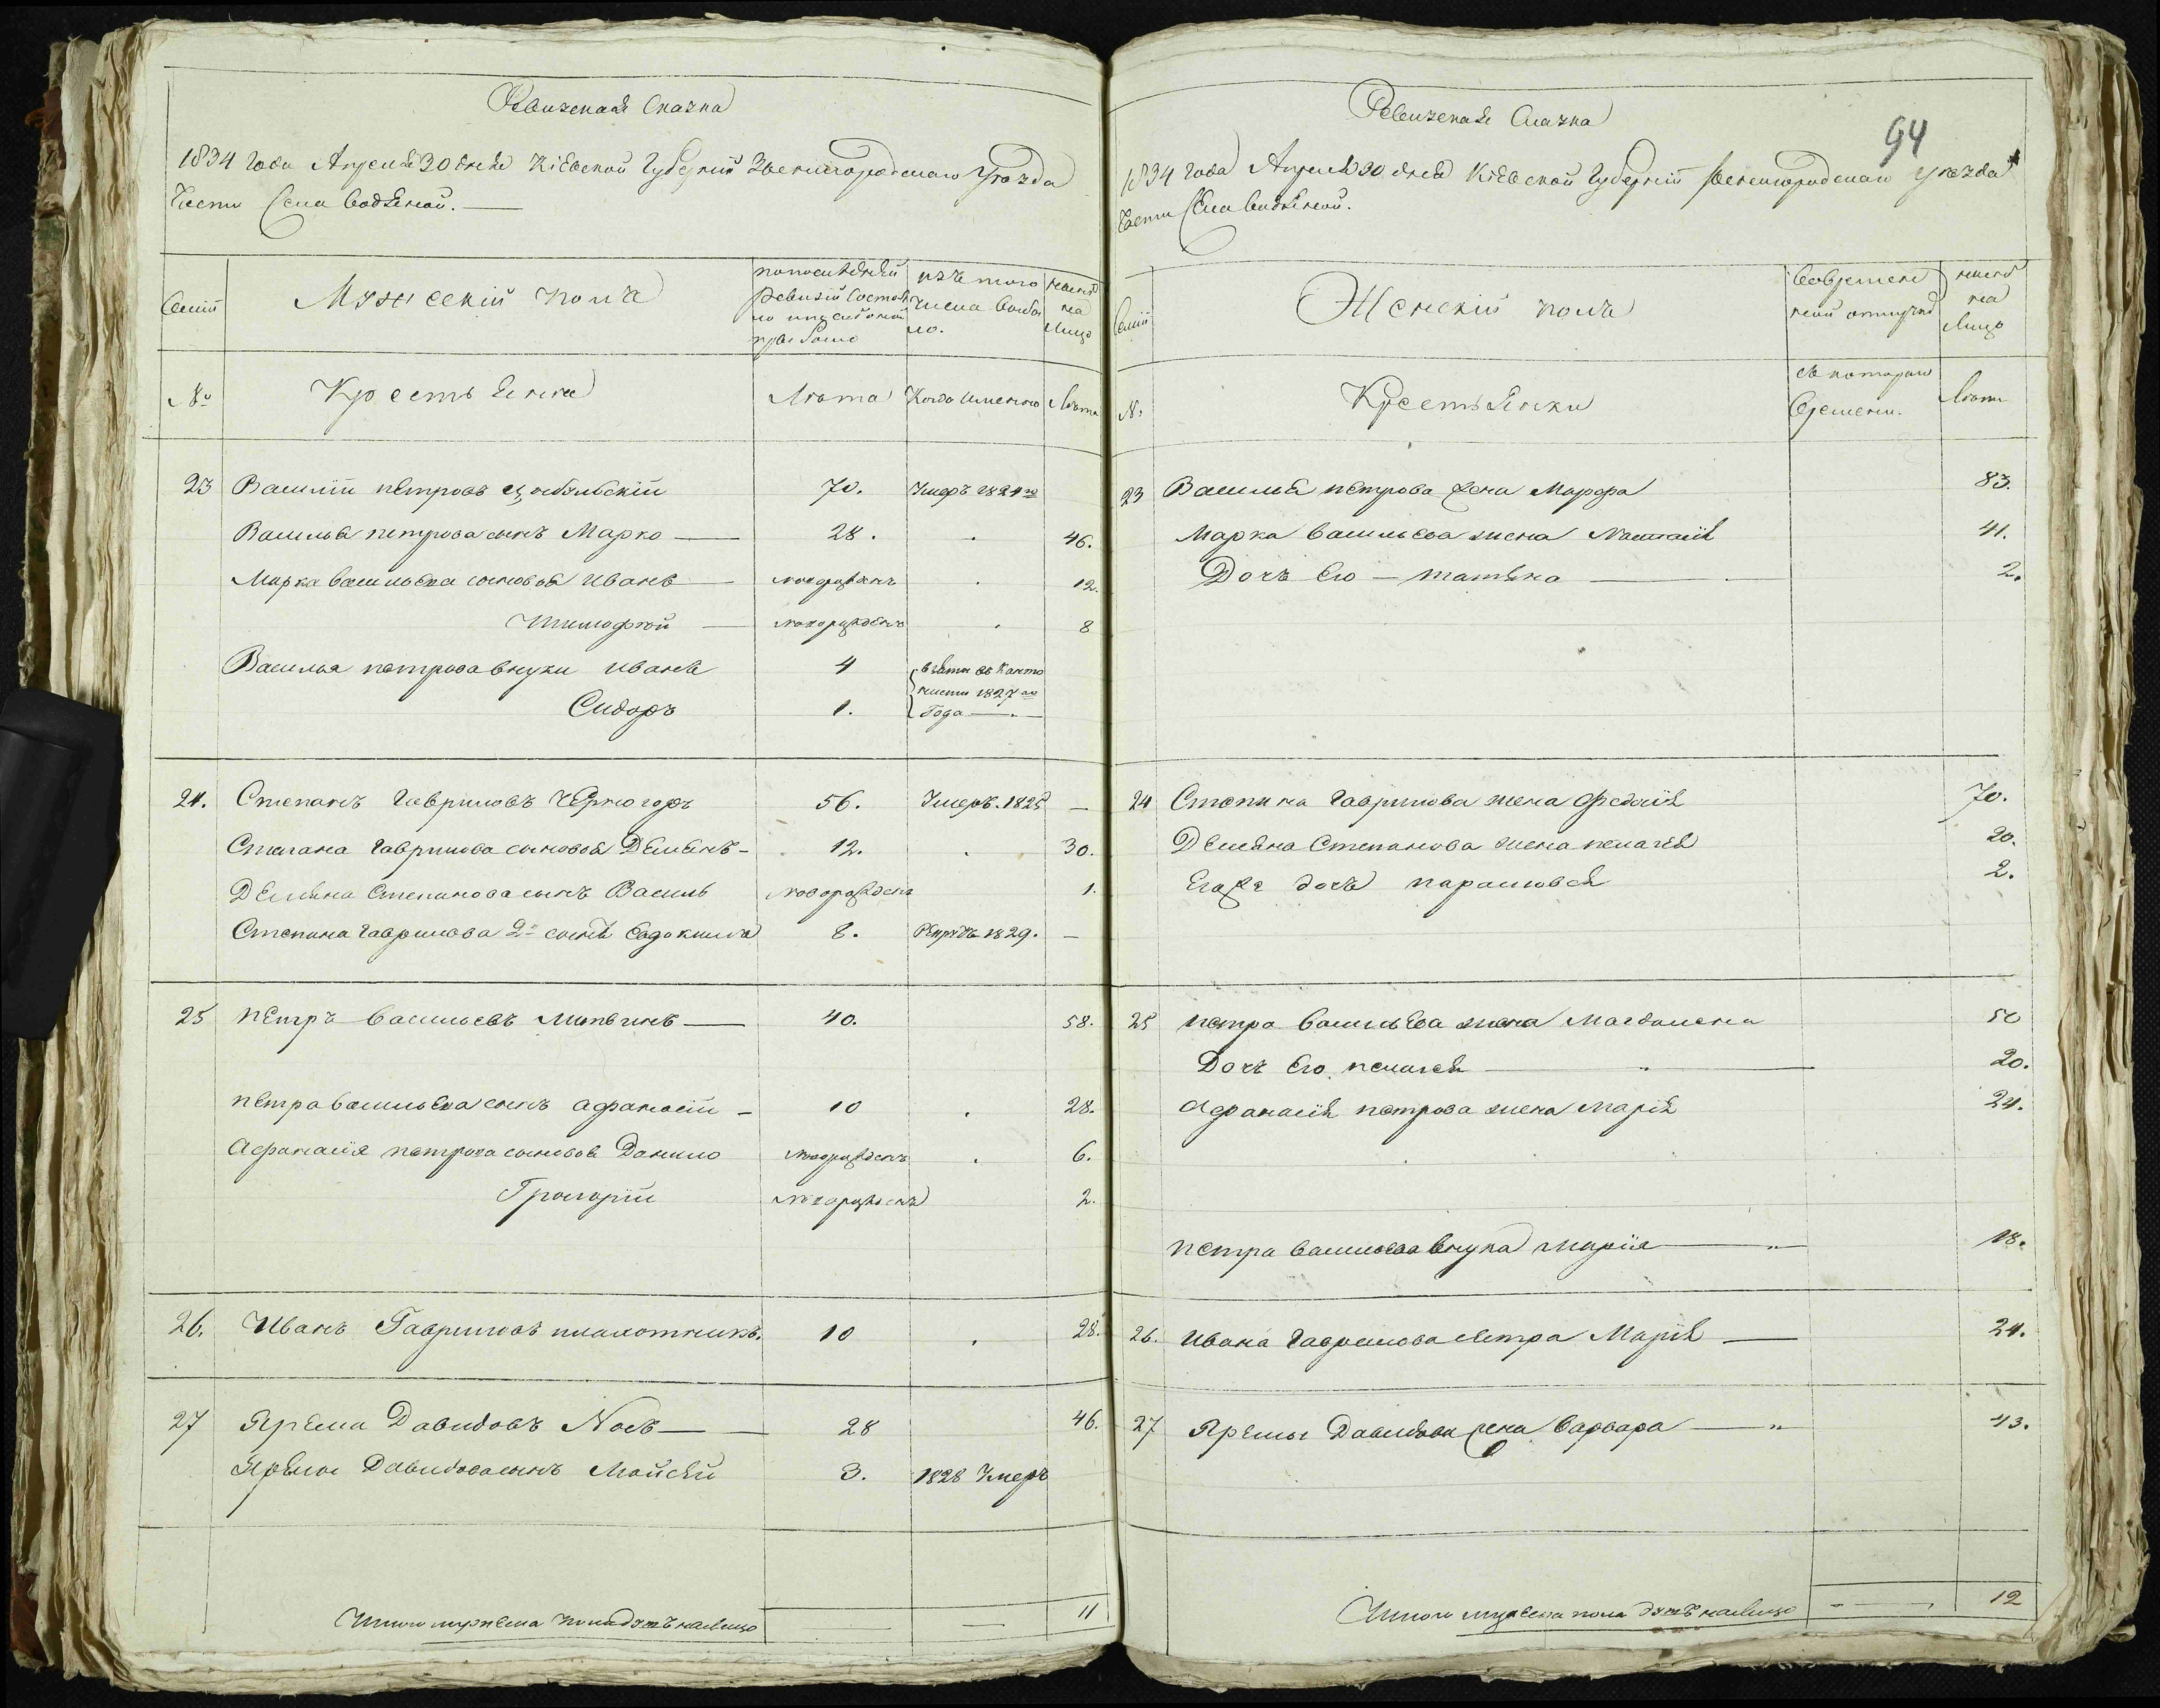 Ревизская Сказка
1834 года Апреля 30 дня Кіевской Губерніи Звенигородскаго Уѣзда
Части Села Водяной.
Семіи
Мужескій полъ
по последней ревизіи состояло и послѣ оной прибыло
изъ того числа выбыло.
ныне на лицо
№
Крестьяне
Лѣта
Когда именно
Лѣта
23 Василій петровъ 70. Умеръ 1824го
Василья петрова сынъ Марко 28. 46.
Марка Васильева сыновья Иванъ новорожденъ 12.
Тимофѣй новорожденъ 8
Василья петрова внуки иванъ 4 взяты въ Канто
Сидоръ 1. нисты 1827го Года
24. Степанъ Гавриловъ Черногоръ 56. Умеръ. 1825
Степана Гаврилова сыновья Демянъ 12. 30.
Демяна Степанова сынъ Василь новорожденъ 1.
Степана Гаврилова 2й сынъ Евдокимъ 8. Рекрутъ 1829.
25 Петръ Васильевъ Литвинъ 40. 58.
Петра Васильева сынъ Афанасій 10 28.
Афанасія петрова сыновья Данило новорожденъ 6.
Григорій новорожденъ 2.
26. Иванъ Гавриловъ 10 28.
27 Ярема Давидовъ Носъ 28 46.
Яремы Давидова сынъ Мойсей 3. 1828 Умеръ
Итого мужеска пола душъ налицо 11
94
Ревизская Сказка
1834 года Апреля 30 дня Кіевской Губерніи Звенигородскаго Уѣзда
Части Села Водяной.
Семіи
Женскій полъ
Во временной отлучке
ныне на лицо
№.
Крестьянки
съ котораго времени.
Лѣта
23 Василья петрова жена Марфа 83.
Марка Васильева жена Наталія 41.
Дочъ Его Татяна 2.
24 Степана Гаврилова жена Федосія 70.
Демяна Степанова жена пелагея 20.
Егожъ дочъ парасковея 2.
25 петра Васильева жена Магдалена 50
Дочъ Его пелагея 20.
Афанасія петрова жена Марія 24.
петра Васильева внука Марія 18.
26. Ивана Гаврилова сестра Марія 24.
27 Яремы Давидова жена Варвара 43.
Итого пола душъ налицо 12